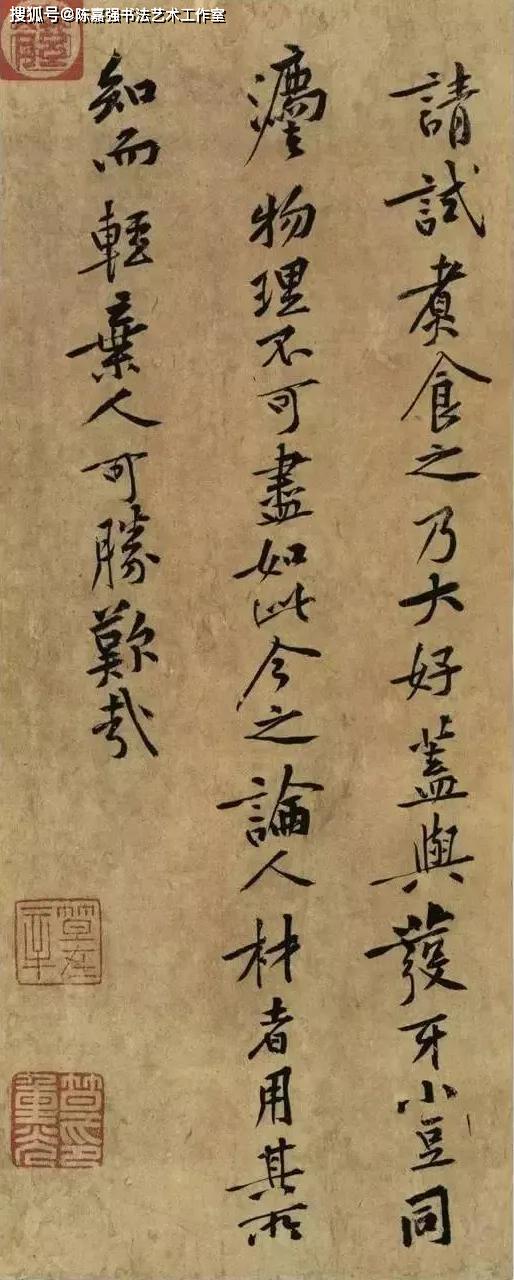 搜狐号@陈嘉强书法艺术工作室
請試煮食之乃大好蓋與發牙小豆同
灋物理不可盡如此今之論人材者用其所
知而輕棄人可勝歎哉